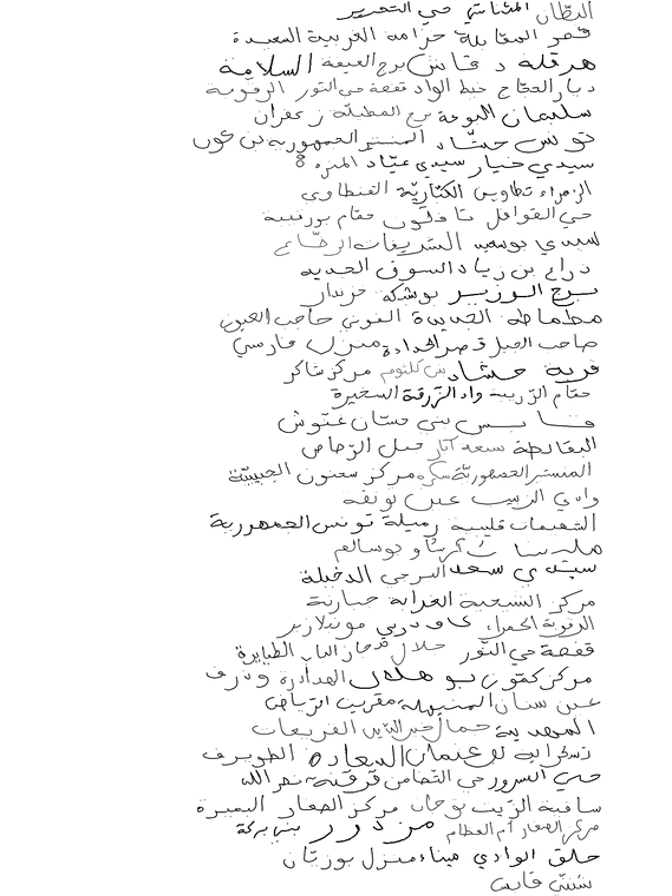 البطان المشتاشي حي التحرير
قصر المقابلة حزامة الغربية السعيدة
هرقلة دقاش برج العيفة السلامة
ديار الحجاج خيط الواد قفصة حي النور الرقوبة
سليمان البومة برج المطيلة زعفران
تونس حشاد المنستير الجمهورية بن عون
سيدي خيار سيدي عياد المنزه 8
الزهراء تطاوين الكتارية القنطاوي
حي القوافل تافلون حمام بورقيبة
سيدي بوسعيد الشريفات الرضاع
ذراع بن زياد السوق الجديد
برج الوزير بوشكة خزندار
مطماطة الجديدة الفوني حاجب العيون
صاحب الجبل قصر الحدادة منزل فارسي
قرية حشاد بن كلثوم مركز شاكر
حمام الزريبة واد الزرقة السخيرة
قابس بني حسان غنوش
البقالطة سبعة آبار جبل الرصاص
المنستير الجمهورية سكره مركز سعنون الحبيبية
وادي الزيت عين بونفة
الشعيمات قليبية رميلة تونس الجمهورية
ملدينا بوسالم
سيدي سعد البرجي الدخيلة
مركز الشيحية الغرابة جبارنة
الرقوبة الحمراء
قفصة حي النور جلال الطبايرة
مركز كمون بوهلال الهدادرة وذرف
عين سنان المنيهلة مقرين الرياض
المهدية جمال خير الدين القريعات
زكرانة عثمان السعادة الطويرف
حي السرور حي التضامن قرقنة نصر الله
ساقية الزيت بوجان مركز الصغار البعيرة
مركز الصغار أم العظام مزدور بني بركة
حلق الوادي ميناء منزل بوزيان
شنني قابس